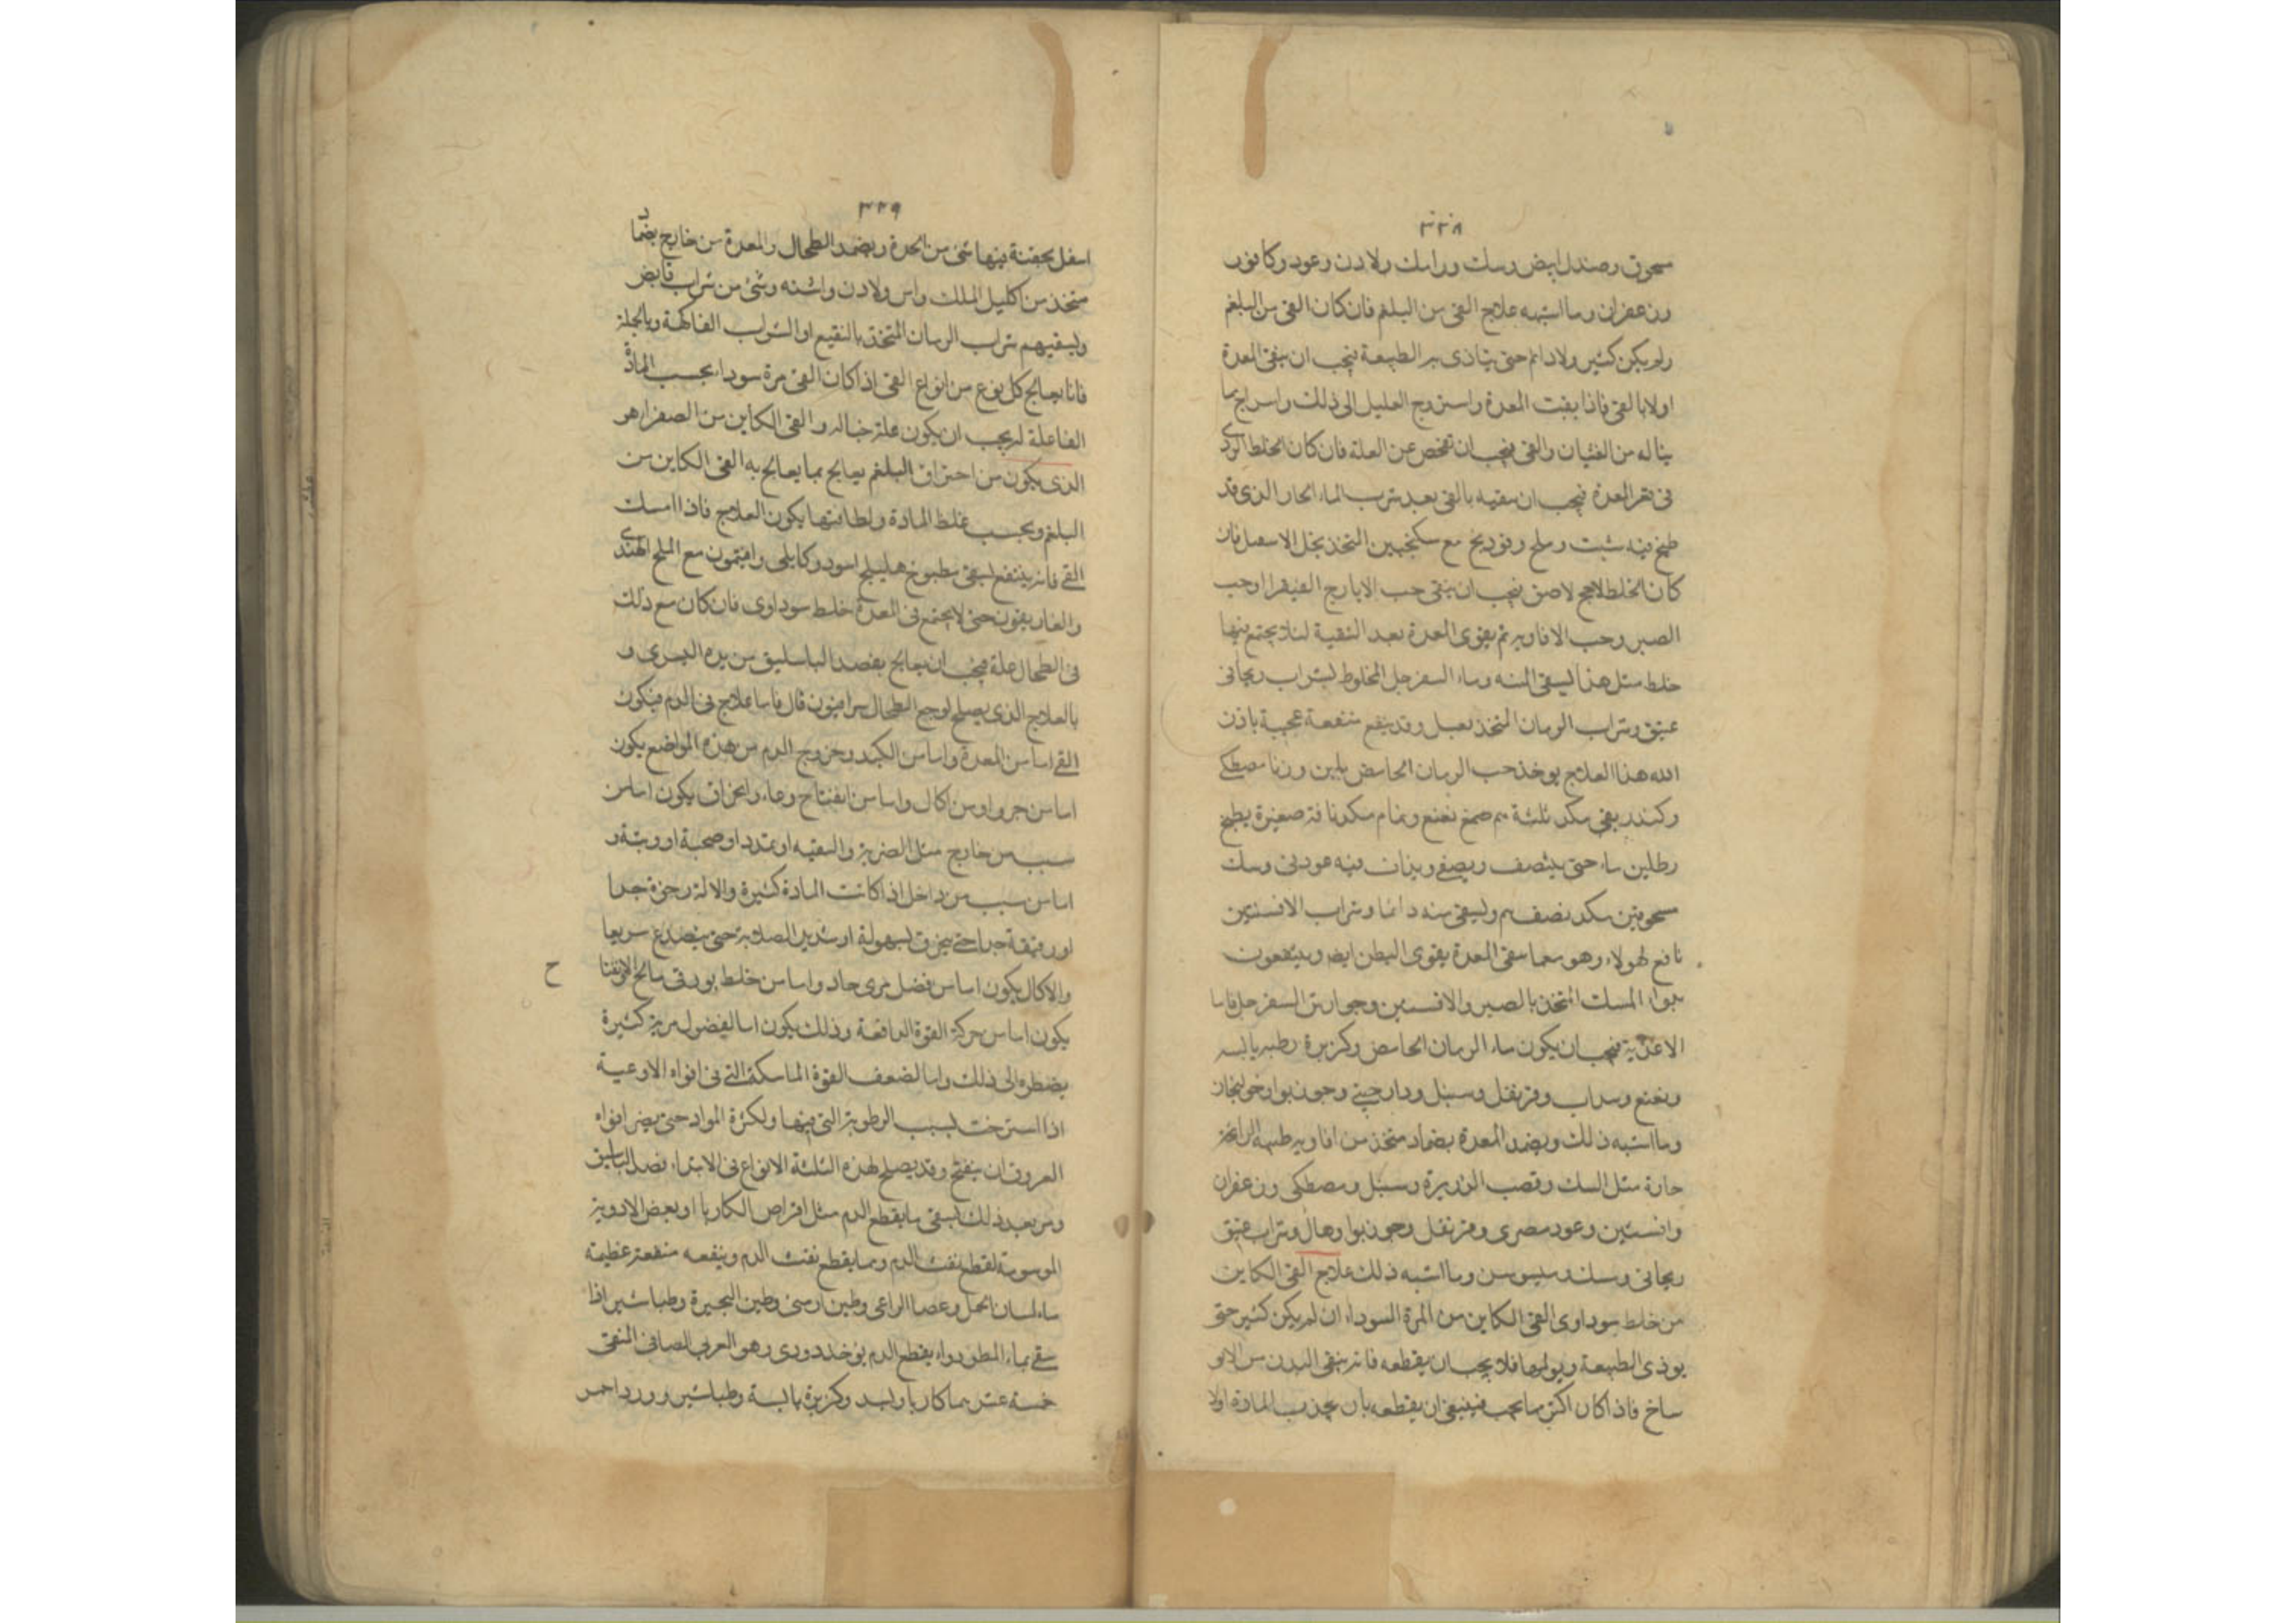 ٣٣٨
مسحوق وصندل ابيض وسك ورامك ولادن وعود وكافور
وزعفران وما اشبهه علاج القى من البلغم فان كان القى من البلغم
ولم يكن كثير ولا دائم حتى يتاذى به الطبيعة فيجب ان ينقى المعدة
اولا بالقى فاذا نقيت المعدة واستروح العليل الى ذلك واستراح مما
يناله من الغثيان والقى فيجب ان تفحص عن العلة فان كان الخلط الردى
فى قعر المعدة فيجب ان ينقيه بالقى بعد شرب الماء الحار الذى قد
طبخ فيه شبت وملح وفوديخ مع سكنجبين المتخذ بخل الاسقيل فان
كان الخلط لاحج لاصق فيجب ان ينقى بحب الايارج الفيقرا او حب
الصبر وحب الافاويه ثم يقوى المعدة بعد التنقية لئلا يجتمع فيها
خلط مثل هذا ليسقى الميبه وماء السفرجل المخلوط بشراب ريحانى
عتيق وشراب الرمان المتخذ بعسل وقد ينفع منفعة عجيبة باذن
الله هذا العلاج يوخذ حب الرمان الحامض ثلثين وزنا مصطكى
وكندر نقى مكد ثلثة م صمغ نعنع ونمام مكد باقة صغيرة يطبخ
رطلين ماء حتى ينتصف ويصفى ويذاف فيه عود نى وسك
مسحوقين مكد نصف م وليسقى منه دائما وشراب الافسنتين
نافع لهولاء وهو مما ينقى المعدة يقوى البطن ايض وينتفعون
بدواء المسك المتخذ بالصبر والافسنتين وجوارش السفرجل فاما
الاغذية فيجب ان يكون ماء الرمان الحامض وكزبرة رطبه يابسه
ونعنع وسداب وقرنفل وسنبل ودارچينى وجوزبوا وخولنجان
وما اشبه ذلك ويضمد المعدة بضماد متخذ من افاويه طيبه الرائحة
حارة مثل السك وقصب الذريرة وسنبل ومصطكى وزعفران
وافسنتين وعود مصرى وقرنفل وجوزبوا وهال وشراب عتيق
ريحانى وسك وميسوسن وما اشبه ذلك علاج القى الكاين
من خلط سوداوى القى الكاين من المرة السوداء ان لم يكن كثير حتى
يوذى الطبيعة ويولمها فلا يجب ان يقطعه فانه ينقى البدن من الاو
ساخ فاذا كان اكثر مما يجب فينبغى ان يقطعه بان يجذب المادة اولا
٣٣٩
اسفل بحقنة فيها شى من الحدة ويضمد الطحال والمعدة من خارج بضماد
متخذ من اكليل الملك واس ولادن واشنه وشئ من شراب قابض
وليسقيهم شراب الرمان المتخذ بالنقيع او الشراب الفاكهة وبالجملة
فانا نعالج كل نوع من انواع القى اذا كان القى مرة سودا بحسب المادة
الفاعلة له يجب ان يكون علة خباله والقى الكاين من الصفرا هو
الذى يكون من احتراق البلغم يعالج بما يعالج به القى الكاين من
البلغم وبحسب غلظ المادة ولطافتها يكون العلاج فاذا امسك
القے فانه ينتفع بسقى مطبوخ هليلج اسود وكابلى وافيثمون مع الملح الهندى
والغاريقون حتى لا يجتمع فى المعدة خلط سوداوى فان كان مع ذلك
فى الطحال علة فيجب ان يعالج بفصد الباسليق من يده اليسرى و
بالعلاج الذى يصلح لوجع الطحال سرافيون قال فاما علاج فى الدم فيكون
القے اما من المعدة واما من الكبد وخروج الدم من هذه المواضع يكون
اما من حرق او من اكال واما من انفتاح وعاء وانخراق يكون اما من
سبب من خارج مثل الضربة والسقيه او تمدد او صحبة او وثبة و
اما من سبب من داخل اذا كانت المادة كثيرة والالة رخوة جدا
او رقيقة جدا حتى ينخرق بسهولة او شديد الصلابة حتى ينصدع سريعا
والاكال يكون اما من فضل مرى حاد واما من خلط بورقى مالح الانفتا
ح
يكون اما من حركة القوة الدافعة وذلك يكون اما لفضول مرية كثيرة
يضطره الى ذلك واما لضعف القوة الماسكة التى فى افواه الاوعية
اذا استرخت بسبب الرطوبة التى فيها ولكثرة المواد حتى يضر افواه
العروق ان ينفتح وقد يصلح لهذه الثلثة الانواع فى الابتداء فصد الباسليق
ومن بعد ذلك يسقى ما يقطع الدم مثل اقراص الكاربا او بعض الادوية
الموسومة لقطع نفث الدم ومما يقطع نفث الدم وينفعه منفعة عظيمة
ماء لسان الحمل وعصا الراعى وطين ارمنى وطين البحيرة وطباشير اذا
سقے بماء المطر دواء يقطع الدم يوخذ دورى وهو العربى الصافى النقى
خمسة عشر م كاربا وبسد وكزبرة يابسة وطباشير وورد احمر